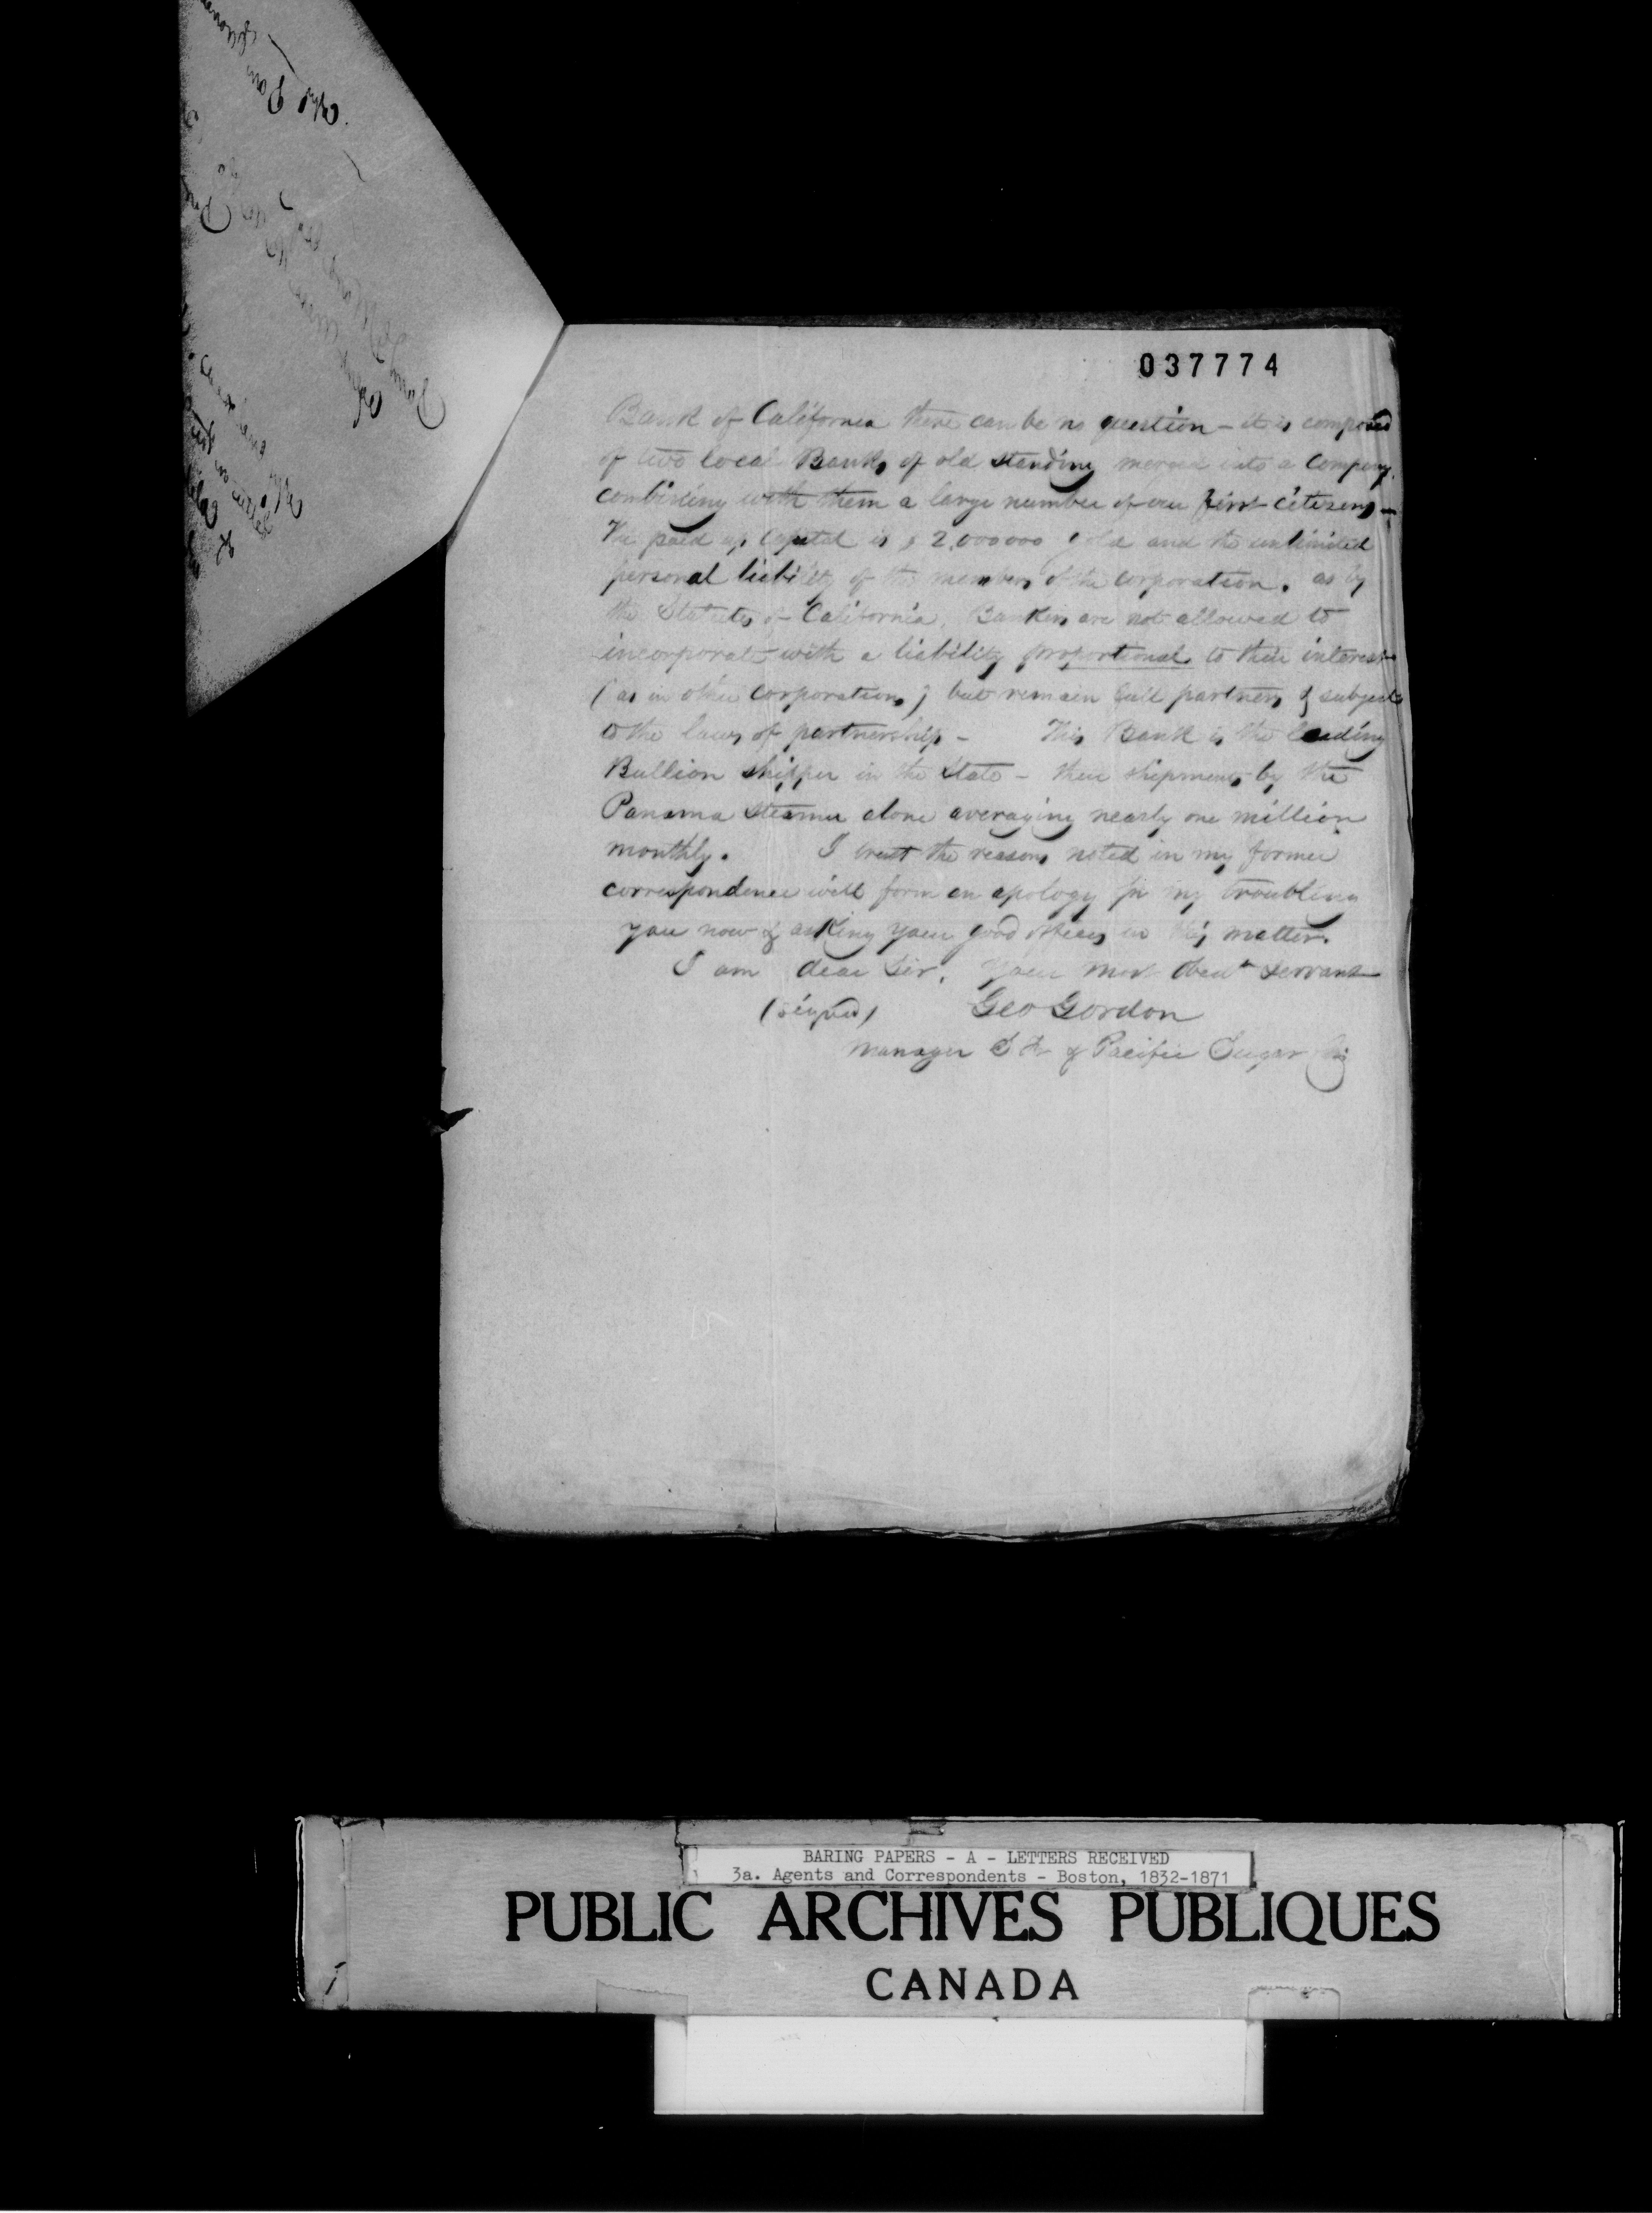 037774
Bank of California there can be no question - it is composed
of two local Banks of old standing merged into a Company
combining with them a large number of our first citizens -
The paid up Capital is $ 2,000000 gold and the unlimited
personal liability of the members of the corporation. as by
the Statutes of California, Bankers are not allowed to
incorporate with a liability proportional to their interest
(as in other Corporations) but remain full partners & subject
to the laws of partnership - This Bank is the leading
Bullion shipper in the State - their shipments by the
Panama steamer alone averaging nearly one million
monthly. I trust the reasons noted in my former
correspondence will form an apology for my troubling
you now & asking your good offices in this matter.
I am dear Sir, Your most obedt Servant
(signed) Geo Gordon
Manager S F & Pacific Sugar Co
BARING PAPERS - A - LETTERS RECEIVED
3a. Agents and Correspondents - Boston, 1832-1871
PUBLIC ARCHIVES PUBLIQUES
CANADA